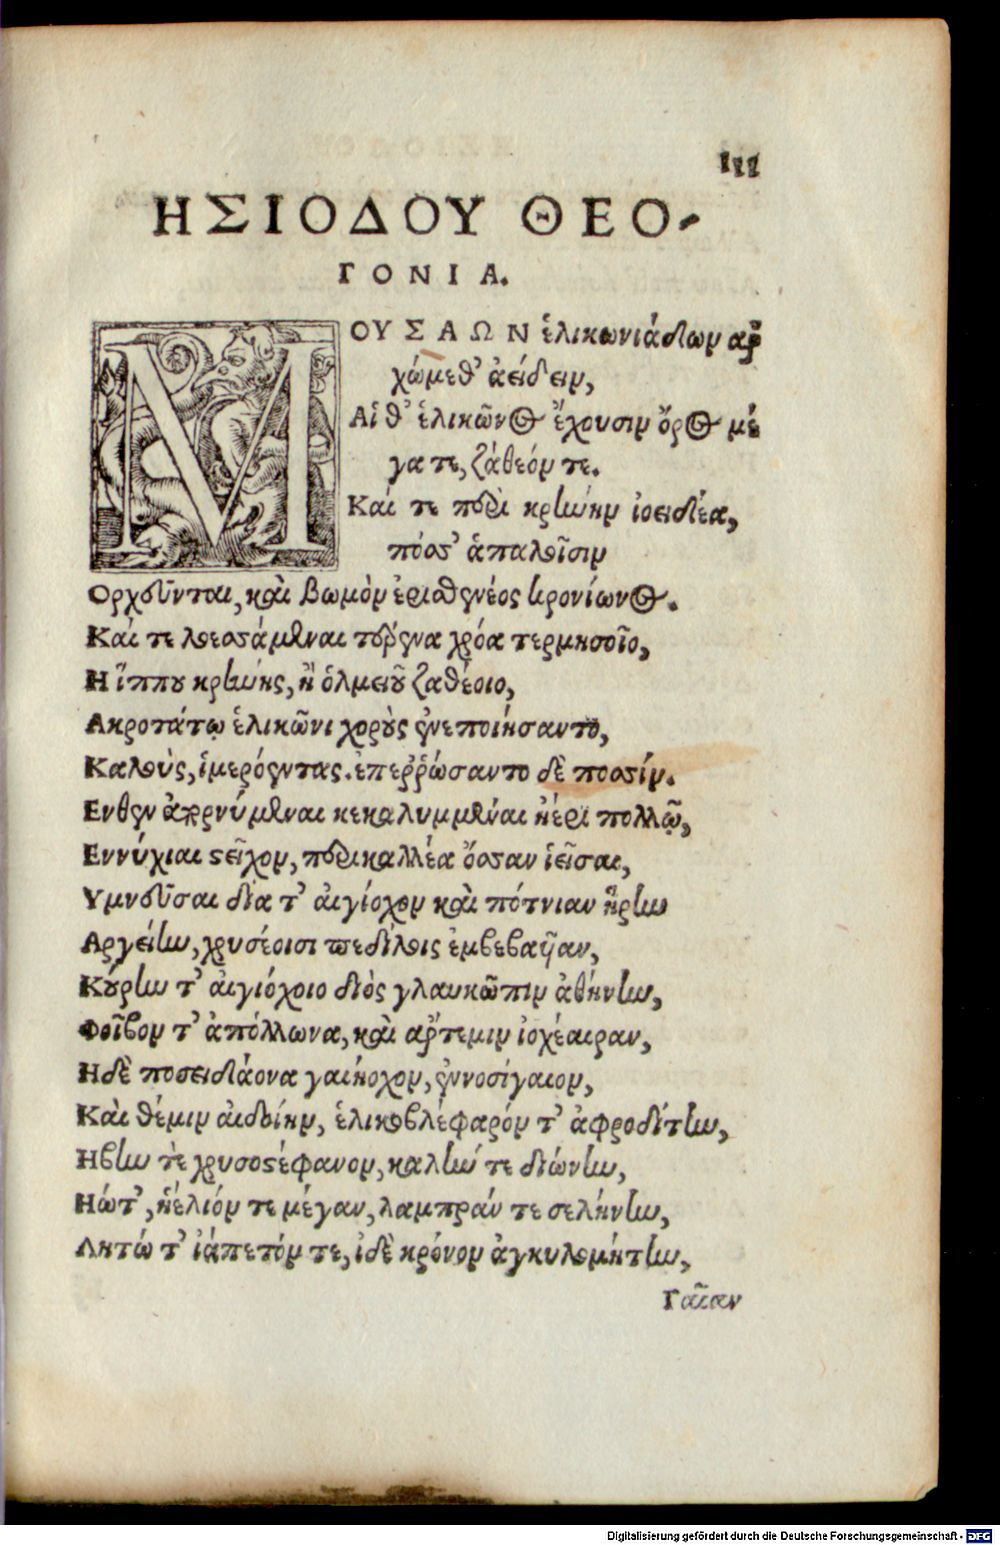 111
ΗΣΙΟΔΟΥ ΘΕΟ-
ΓΟΝΙΑ.
ΜΟΥΣΑΩΝ ἑλικωνιάδων ἀρ
χώμεθ’ ἀείδειν,
Αἵ θ’ ἑλικῶνος ἔχουσιν ὄρος μέ
γα τε, ζάθεόν τε.
Καί τε περὶ κρήνην ἰοειδέα,
πόσσ’ ἁπαλοῖσιν
Ορχοῦνται, καὶ βωμὸν ἐρισθενέος κρονίωνος.
Καί τε λοεσσάμεναι τέρενα χρόα τερμησοῖο,
Η ἵππου κρήνης, ἢ ὁλμειοῦ ζαθέοιο,
Ακροτάτῳ ἑλικῶνι χοροὺς ἐνεποιήσαντο,
Καλοὺς, ἱμερόεντας. ἐπεῤῥώσαντο δὲ ποσσίν.
Ενθεν ἀπορνύμεναι κεκαλυμμέναι ἠέρι πολλῷ,
Εννύχιαι στεῖχον, περικαλλέα ὄσσαν ἱεῖσαι,
Υμνοῦσαι δία τ’ αἰγίοχον καὶ πότνιαν ἥρην
Αργείην, χρυσέοισι πεδίλοις ἐμβεβαυῖαν,
Κούρην τ’ αἰγιόχοιο διὸς γλαυκῶπιν ἀθήνην,
Φοῖβον τ’ ἀπόλλωνα, καὶ ἄρτεμιν ἰοχέαιραν,
Ηδὲ ποσειδάονα γαιήοχον, ἐννοσίγαιον,
Καὶ θέμιν αἰδοίην, ἑλικοβλέφαρόν τ’ ἀφροδίτην,
Ηβην τὲ χρυσοστέφανον, καλήν τε διώνην,
Ηώ τ’, ἠέλιόν τε μέγαν, λαμπράν τε σελήνην,
Λητώ τ’ ἰάπετόν τε, ἰδὲ κρόνον ἀγκυλομήτην,
Γαῖαν
Digitalisierung gefördert durch die Deutsche Forschungsgemeinschaft - DFG